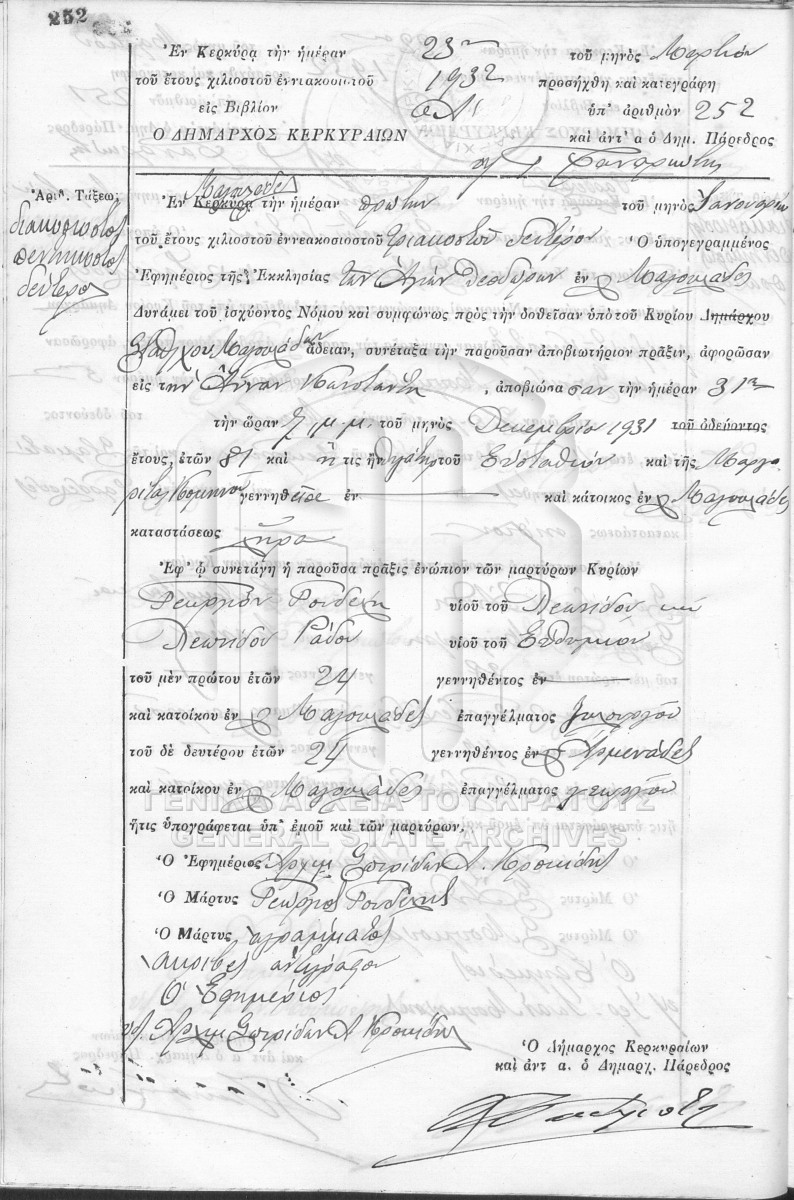 252
Ἐν Κερκύρᾳ τὴν ἡμέραν 23ην τοῦ μηνὸς Μαρτίου
τοῦ ἔτους χιλιοστοῦ ἐννεακοσιοστοῦ 1932 προσήχθη καὶ κατεγράφη
εἰς Βιβλίον ὑπ' ἀριθμὸν 252
Ὁ ΔΗΜΑΡΧΟΣ ΚΕΡΚΥΡΑΙΩΝ καὶ ἀντ' α ὁ Δημ. Πάρεδρος
Ἀριθ. Τάξεως
διακοσιοστὸς
πεντηκοστὸς
δεύτερος
Μαγουλάδες
Ἐν Κερκύρᾳ τὴν ἡμέραν πρώτην τοῦ μηνὸς Ἰανουαρίου
τοῦ ἔτους χιλιοστοῦ ἐννεακοσιοστοῦ τριακοστοῦ δευτέρου Ὁ ὑπογεγραμμένος
Ἐφημέριος τῆς Ἐκκλησίας τῶν Ἁγίων Θεοδώρων ἐν Μαγουλάδες
Δυνάμει τοῦ ἰσχύοντος Νόμου καὶ συμφώνως πρὸς τὴν δοθεῖσαν ὑπὸ τοῦ Κυρίου Δημάρχου
Μαγουλάδων ἄδειαν, συνέταξα τὴν παροῦσαν ἀποβιωτήριον πρᾶξιν, ἀφορῶσαν
εἰς τὴν Ἄνναν, ἀποβιώσασαν τὴν ἡμέραν 31ην
τὴν ὥραν 7 μ.μ. τοῦ μηνὸς Δεκεμβρίου 1931 τοῦ ὁδεύοντος
ἔτους, ἐτῶν 81 καὶ ἥτις ἦν θυγάτηρ τοῦ Εὐσταθίου καὶ τῆς Μαργα
ρίτας γεννηθεῖσα ἐν καὶ κάτοικος ἐν Μαγουλάδες
καταστάσεως χήρα
Ἐφ' ᾧ συνετάγη ἡ παροῦσα πρᾶξις ἐνώπιον τῶν μαρτύρων Κυρίων
Γεωργίου υἱοῦ τοῦ Λεωνίδου καὶ
Λεωνίδου Ράδου υἱοῦ τοῦ Εὐθυμίου
τοῦ μὲν πρώτου ἐτῶν 24 γεννηθέντος ἐν
καὶ κατοίκου ἐν Μαγουλάδες ἐπαγγέλματος
τοῦ δὲ δευτέρου ἐτῶν 24 γεννηθέντος ἐν Ἀρμενάδες
καὶ κατοίκου ἐν Μαγουλάδες ἐπαγγέλματος γεωργοῦ
ἥτις ὑπογράφεται ὑπ' ἐμοῦ καὶ τῶν μαρτύρων,
ΓΕΝΙΚΑ ΑΡΧΕΙΑ ΤΟΥ ΚΡΑΤΟΥΣ
GENERAL STATE ARCHIVES
Ὁ Ἐφημέριος Ἀρχιμ Σπυρίδων Α. Κροκίδης
Ὁ Μάρτυς Γεώργιος
Ὁ Μάρτυς ἀγράμματος
Ἀκριβὲς ἀντίγραφον
Ὁ Ἐφημέριος
Ἀρχιμ Σπυρίδων Α Κροκίδης
Ὁ Δήμαρχος Κερκυραίων
καὶ ἀντ α. ὁ Δημαρχ. Πάρεδρος